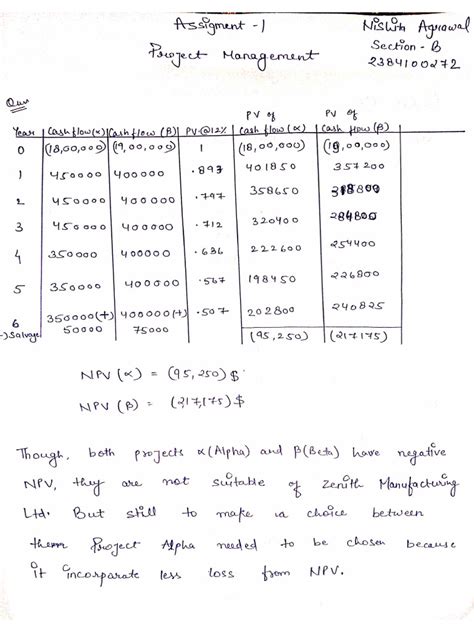 Assigment -1
Nishith Agrawal
Project Management
Section - B
2384100272
Ques
Year | Cash flow(α) | Cash flow (β) | PV@12% | PV of cash flow (α) | PV of cash flow (β)
0 (18,00,000) (19,00,000) 1 (18,00,000) (19,00,000)
1 450000 400000 .893 401850 357200
2 450000 400000 .797 358650 318800
3 450000 400000 .712 320400 284800
4 350000 400000 .636 222600 254400
5 350000 400000 .567 198450 226800
6 350000(+) 400000(+) .507 202800 240825
-) Salvage 50000 75000 (95,250) (217175)
NPV (α) = (95,250) $
NPV (β) = (217,175) $
Though, both projects α(Alpha) and β(Beta) have negative
NPV, they are not suitable of Zenith Manufacturing
Ltd. But still to make a choice between
them Project Alpha needed to be chosen because
it incorparate less loss from NPV.